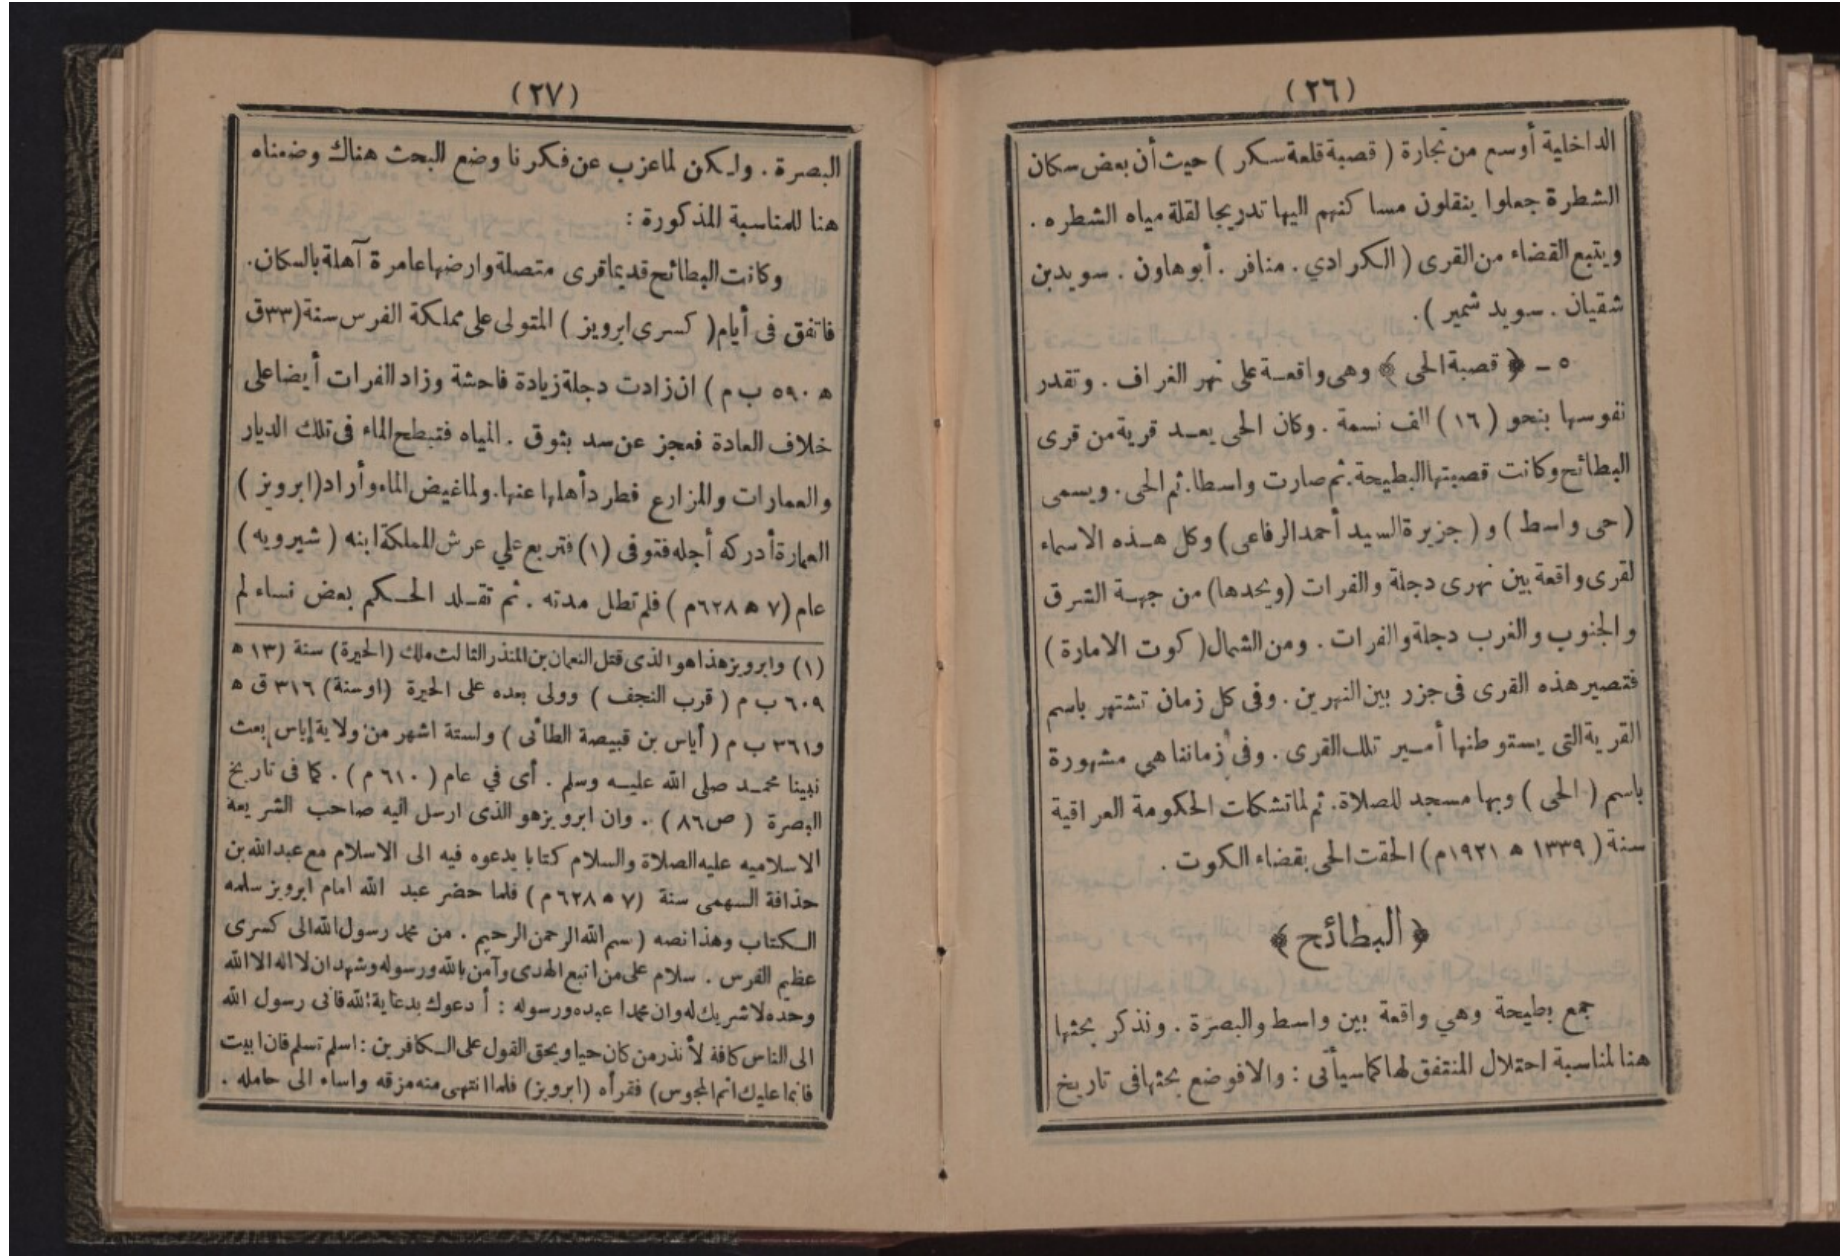 (٢٦)
الداخلية أوسع من تجارة ( قصبة قلعة سكر ) حيث أن بعض سكان
الشطرة جعلوا ينقلون مساكنهم اليها تدريجا لقلة مياه الشطره .
ويتبع القضاء من القرى ( الكرادي . منافر . أبوهاون . سويدبن
شقيان . سويد شمير ) .
٥ ـ ﴿ قصبة الحي ﴾ وهى واقعة على نهر الغراف . وتقدر
نفوسها بنحو ( ١٦ ) الف نسمة . وكان الحى يعد قرية من قرى
البطائح وكانت قصبتها البطيحة . ثم صارت واسطا . ثم الحى . ويسمى
( حى واسط ) و ( جزيرة السيد أحمد الرفاعى ) وكل هذه الاسماء
لقرى واقعة بين نهرى دجلة والفرات ( ويحدها ) من جهة الشرق
والجنوب والغرب دجلة والفرات . ومن الشمال ( كوت الامارة )
فتصير هذه القرى فى جزر بين النهرين . وفى كل زمان تشتهر باسم
القرية التى يستوطنها أمير تلك القرى . وفى زماننا هي مشهورة
باسم ( الحى ) وبها مسجد للصلاة . ثم لما تشكلت الحكومة العراقية
سنة ( ١٣٣٩ ه ١٩٢١م ) الحقت الحى بقضاء الكوت .
﴿ البطائح ﴾
جمع بطيحة وهي واقعة بين واسط والبصرة . ونذكر بحثها
هنا لمناسبة احتلال المنتفق لها كما سيأتى : والافوضع بحثها فى تاريخ
(٢٧)
البصرة . ولكن لما عزب عن فكرنا وضع البحث هناك وضعناه
هنا للمناسبة المذكورة :
وكانت البطائح قديما قرى متصلة وارضها عامرة آهلة بالسكان .
فاتفق فى أيام ( كسرى ابرويز ) المتولى على مملكة الفرس سنة ( ٣٣ ق
ه ٥٩٠ ب م ) ان زادت دجلة زيادة فاحشة وزاد الفرات أيضا على
خلاف العادة فعجز عن سد بثوق . المياه فتبطح الماء فى تلك الديار
والعمارات والمزارع فطرد أهلها عنها . ولما غيض الماء وأراد ( ابرويز )
العمارة أدركه أجله فتوفى (١) فتربع علي عرش المملكة ابنه ( شيرويه )
عام ( ٧ ه ٦٢٨م ) فلم تطل مدته . ثم تقلد الحكم بعض نساء لم
(١) وابرويز هذا هو الذى قتل النعمان بن المنذر الثالث ملك ( الحيرة ) سنة ( ١٣ ه
٦٠٩ ب م ( قرب النجف ) وولى بعده على الحيرة ( اوسنة ) ٣١٦ ق ه
و ٣٦١ ب م ( أياس بن قبيصة الطائى ) ولستة اشهر من ولاية إياس بعث
نبينا محمد صلى الله عليه وسلم . أى في عام ( ٦١٠ م ) . كما فى تاريخ
البصرة ( ص ٨٦ ) . وان ابرويز هو الذى ارسل اليه صاحب الشريعة
الاسلاميه عليه الصلاة والسلام كتابا يدعوه فيه الى الاسلام مع عبدالله بن
حذافة السهمى سنة ( ٧ ه ٦٢٨ م ) فلما حضر عبد الله امام ابرويز سلمه
الكتاب وهذا نصه ( بسم الله الرحمن الرحيم . من محمد رسول الله الى كسرى
عظيم الفرس . سلام على من اتبع الهدى وآمن بالله ورسوله وشهد ان لا اله الا الله
وحده لا شريك له وان محمدا عبده ورسوله : أدعوك بدعاية الله فانى رسول الله
الى الناس كافة لأنذر من كان حيا ويحق القول على الكافرين : اسلم تسلم فان ابيت
فانما عليك اثم المجوس ) فقرأه ( ابرويز ) فلما انتهى منه مزقه واساء الى حامله .